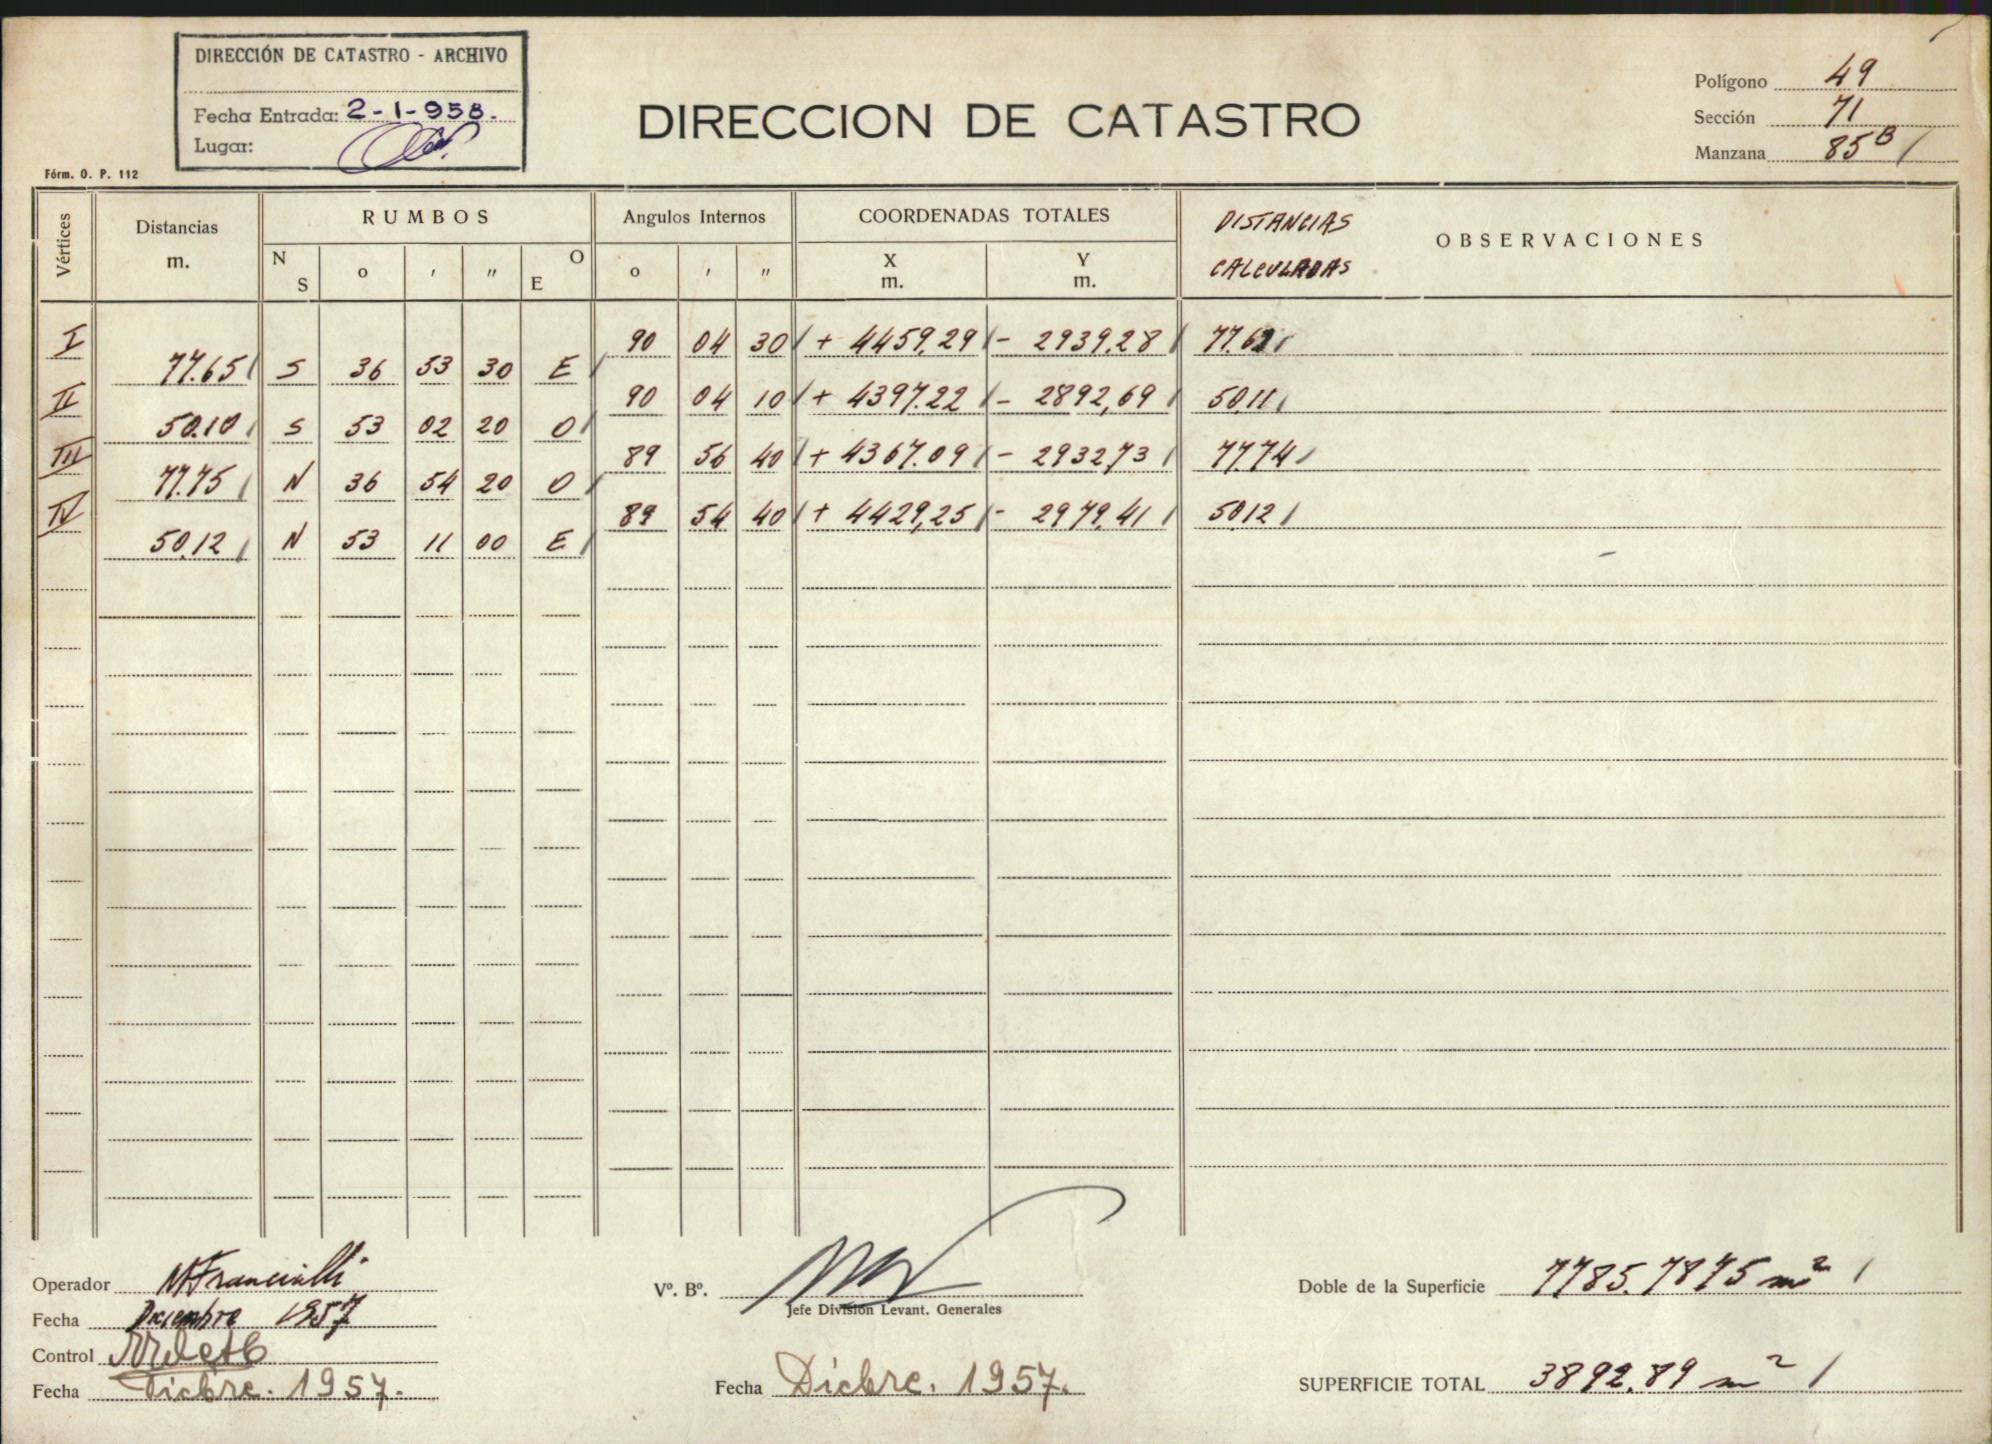 DIRECCIÓN DE CATASTRO - ARCHIVO
Fecha Entrada: 2-1-958.
Lugar:
DIRECCION DE CATASTRO
Polígono 49
Sección 71
Manzana 85B
Fórm. O. P. 112
Vértices Distancias m. RUMBOS Angulos Internos COORDENADAS TOTALES DISTANCIAS CALCULADAS OBSERVACIONES
N S o ' " O E o ' " X m. Y m.
I 90 04 30 + 4459,29 - 2939.28
77.65 S 36 53 30 E
II 90 04 10 + 4397.22 - 2892,69 50.11
50.10 S 53 02 20 O
III 89 56 40 + 4367.09 - 2932,73 77.74
77.75 N 36 54 20 O
IV 89 54 40 + 4429,25 - 2979.41 50.12
50.12 N 53 11 00 E
Operador
Fecha Diciembre 1957
Control
Fecha Dicbre. 1957.
Vº. Bº.
Jefe División Levant. Generales
Fecha Dicbre. 1957.
Doble de la Superficie 7785.7875 m²
SUPERFICIE TOTAL 3892.89 m²